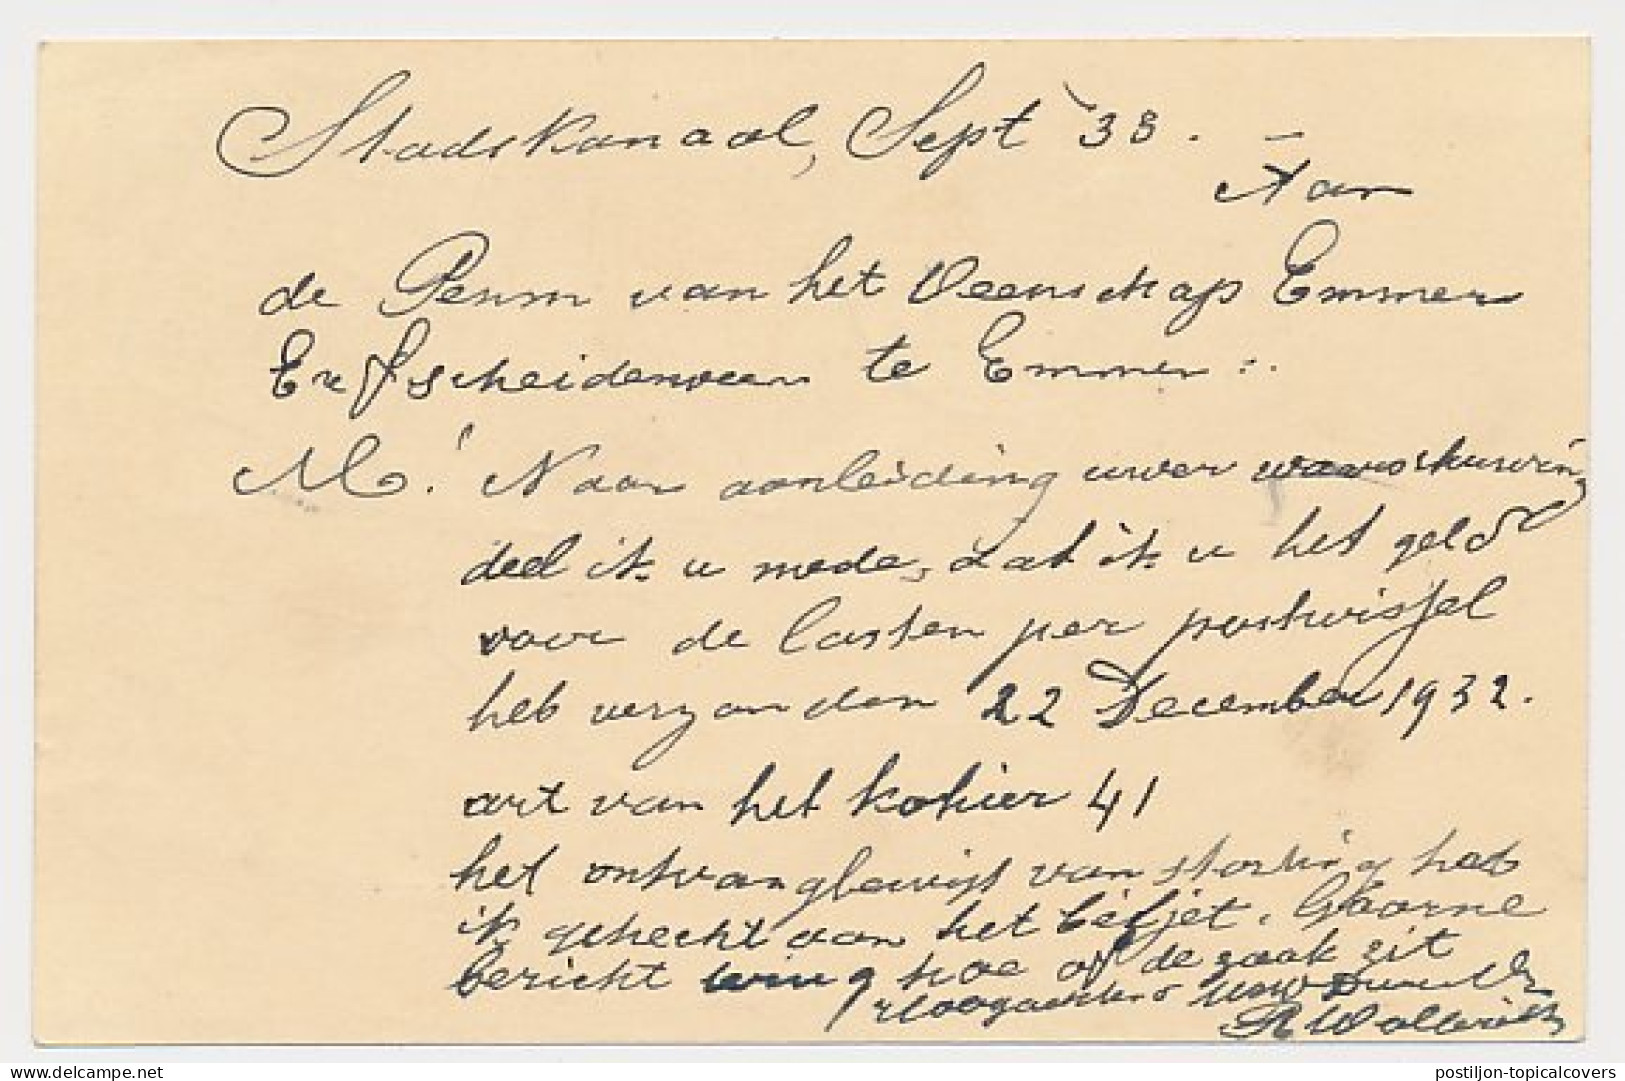 Stadskanaal, Sept '33. —
Aan
de Penm van het Veenschap Emmer
Erfscheidenveen te Emmen:.
M.' Naar aanleiding uwer waarschuwing
deel ik u mede, dat ik u het geld
voor de lasten per postwissel
heb verzonden 22 December 1932.
art van het kohier 41
het ontvangbewijs van storting heb
ik gehecht aan het biljet. Gaarne
bericht hoe of de zaak zit
Hoogachtend Uw